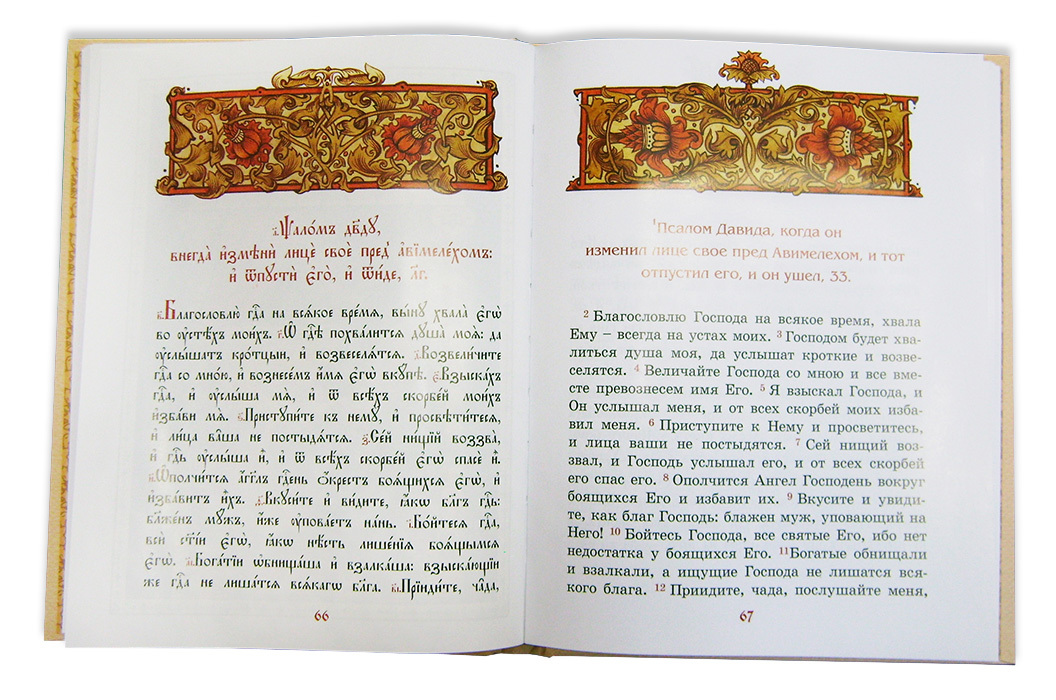 а҃.Ѱало́мъ дв҃ду,
внегда̀ и҆змѣнѝ лицѐ своѐ пред̾ а҆вїмеле́хомъ:
и҆ ѿпустѝ є҆го̀, и҆ ѿи́де, л҃г.
в҃.Благословлю̀ гд҇а на всѧ́кое вре́мѧ, вы́нꙋ хвала̀ є҆гѡ̀
во ᲂу҆стѣ́хъ мои́хъ. г҃.Ѡ҆ гд҇ѣ похва́литсѧ дꙋша̀ моѧ̀: да
ᲂу҆слы́шатъ кро́тцыи, и҆ возвеселѧ́тсѧ. д҃.Возвели́чите
гд҇а со мно́ю, и҆ вознесе́мъ и҆́мѧ є҆гѡ̀ вкꙋ́пѣ. є҃.Взыска́хъ
гд҇а, и҆ ᲂу҆слы́ша мѧ̀, и҆ ѿ всѣ́хъ скорбе́й мои́хъ
и҆зба́ви мѧ̀. ѕ҃.Пристꙋпи́те къ немꙋ̀, и҆ просвѣти́тесѧ,
и҆ ли́ца ва̑ша не постыдѧ́тсѧ. з҃.Се́й ни́щїй воззва̀,
и҆ гд҇ь ᲂу҆слы́ша и҆̀, и҆ ѿ всѣ́хъ скорбе́й є҆гѡ̀ спасѐ и҆̀.
и҃.Ѡ҆полчи́тсѧ а҆́гг҃лъ гд҇ень ѡ҆́крестъ боѧ́щихсѧ є҆гѡ̀, и҆
и҆зба́витъ и҆̀хъ. ѳ҃.Вкꙋси́те и҆ ви́дите, ꙗ҆́кѡ бл҃гъ гд҇ь:
бл҃же́нъ мꙋ́жъ, и҆́же ᲂу҆пова́етъ на́нь. і҃.Бо́йтесѧ гд҇а,
всѝ ст҃і́и є҆гѡ̀, ꙗ҆́кѡ нѣ́сть лише́нїѧ боѧ́щымсѧ
є҆гѡ̀. а҃і.Бога́тїи ѡ҆бнища́ша и҆ взалка́ша: взыска́ющїи
же гд҇а не лиша́тсѧ всѧ́кагѡ бл҃га. в҃і.Прїиди́те, ча̑да,
66
¹Псалом Давида, когда он
изменил лице свое пред Авимелехом, и тот
отпустил его, и он ушел, 33.
² Благословлю Господа на всякое время, хвала
Ему – всегда на устах моих. ³ Господом будет хва-
литься душа моя, да услышат кроткие и возве-
селятся. ⁴ Величайте Господа со мною и все вме-
сте превознесем имя Его. ⁵ Я взыскал Господа, и
Он услышал меня, и от всех скорбей моих изба-
вил меня. ⁶ Приступите к Нему и просветитесь,
и лица ваши не постыдятся. ⁷ Сей нищий воз-
звал, и Господь услышал его, и от всех скорбей
его спас его. ⁸ Ополчится Ангел Господень вокруг
боящихся Его и избавит их. ⁹ Вкусите и увиди-
те, как благ Господь: блажен муж, уповающий на
Него! ¹⁰ Бойтесь Господа, все святые Его, ибо нет
недостатка у боящихся Его. ¹¹Богатые обнищали
и взалкали, а ищущие Господа не лишатся вся-
кого блага. ¹² Приидите, чада, послушайте меня,
67